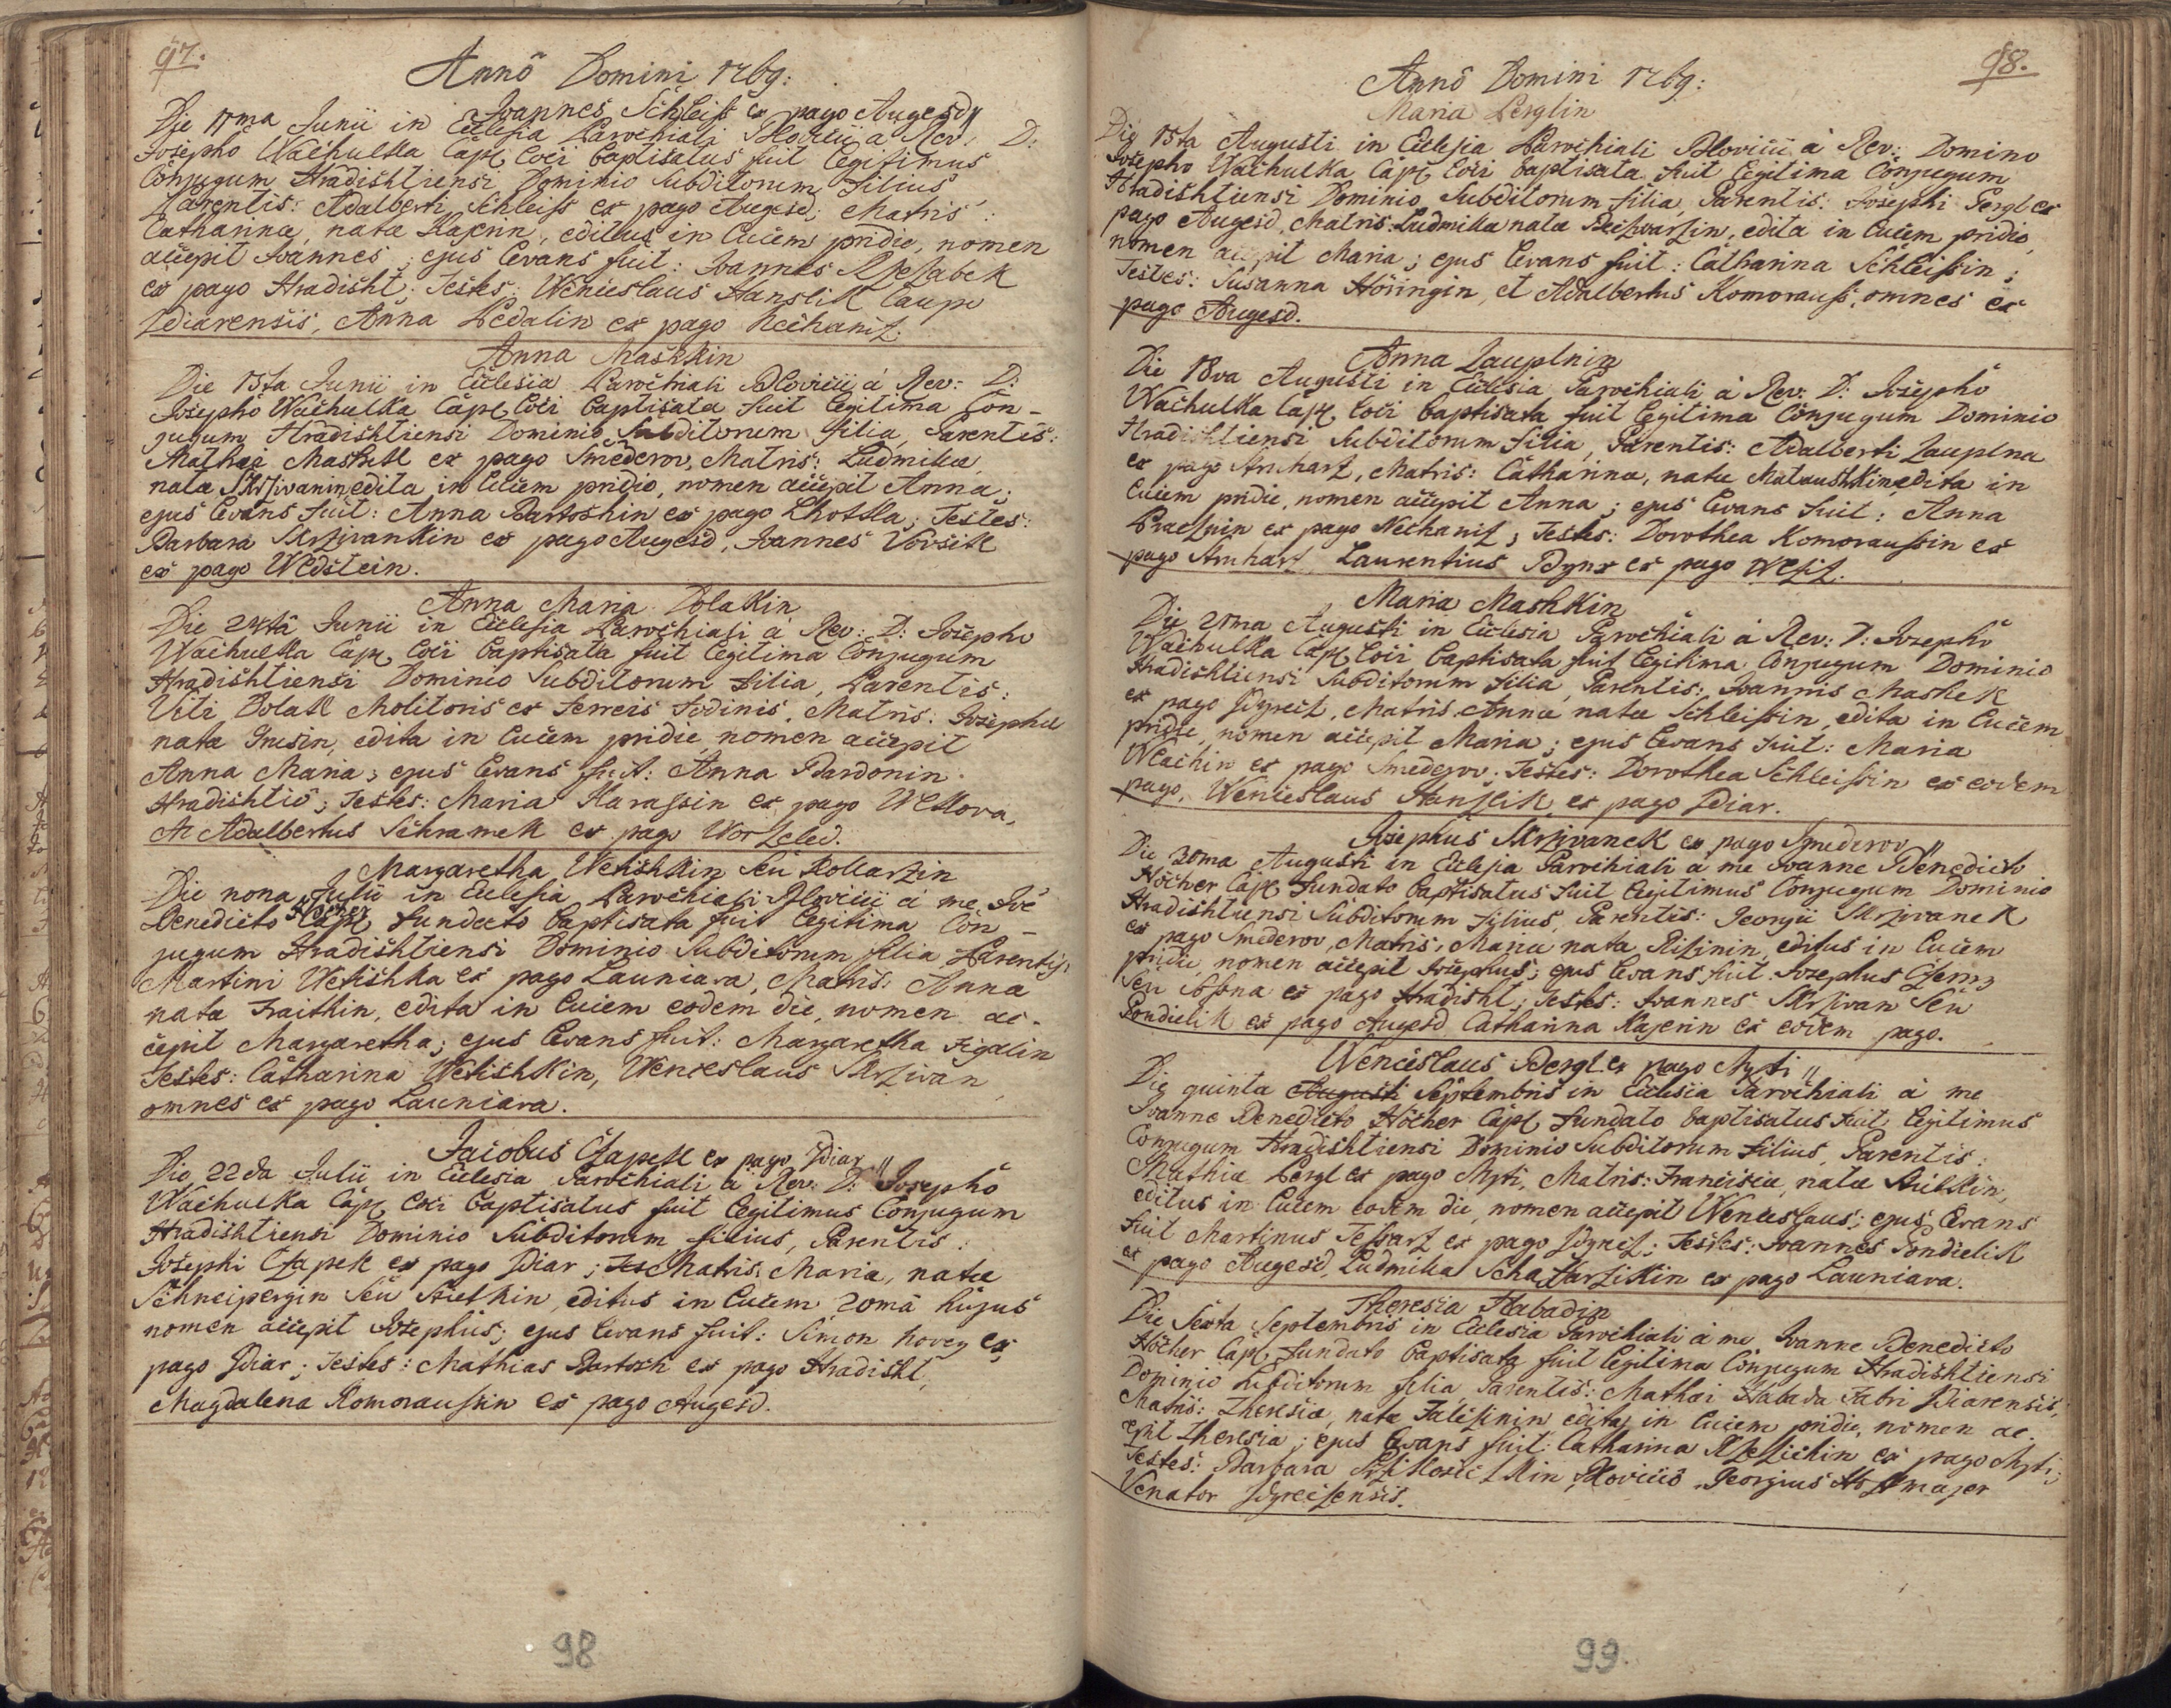 97.
Annō Domini 1769:
Joannes Schleiss ex pago Augesd
Die 11ma Junii in Ecclesia Parochiali Blovicii a Rev: D:
Josepho Wachulka Capl Loci baptisatus fuit legitimus
Conjugum Hradishtiensi Dominio Subditorum Filius
Parentis: Adalberti Schleiss ex pago Augesd: Matris:
Catharinæ, natæ Kajenn, editus in lucem pridie, nomen
accepit Joannes; ejus Levans fuit: Joannes Rzezabek
ex pago Hradisht; Testes: Wenceslaus Hanslik Caupo
Zdiarensis, Anna Pedalin ex pago Nechanitz.
Anna Mashkin
Die 15ta Junii in Ecclesia Parochiali Blovicii à Rev: D:
Josephō Wachulka Capl Loci baptisata fuit legitima Con-
jugum Hradishtiensi Dominio Subditorum filia, Parentis:
Mathæi Mashek ex pago Smederov, Matris: Ludmilæ,
nata Skrzivanin, edita in lucem pridie, nomen accepit Anna;
ejus Levans fuit: Anna Bartoshin ex pago Lhotka; Testes:
Barbara Skrzivankin ex pago Augesd, Joannes Vorsik
ex pago Wldstein.
Anna Maria Polakin
Die 24tâ Junii in Ecclesia Parochiali à Rev: D: Josepho
Wachulka Capl Loci baptisata fuit legitima Conjugum
Hradishtiensi Dominio Subditorum filia, Parentis:
Viti Polak Molitoris ex Ferreis Fodinis, Matris: Josephæ
nata Irusin, edita in lucem pridie nomen accepit
Anna Maria; ejus Levans fuit: Anna Bardonin
Hradishtio; Testes: Maria Karassin ex pago Wlkova,
At Adalbertus Schramek ex pago Worzeled.
Margaretha Wetishkin Seu Kollarzin
Die nona Julii in Ecclesia Parochiali Blovicii à me Joe
Benedicto Höcher Capl fundato baptisata fuit legitima Con-
jugum Hradishtiensi Dominio Subditorum filia Parentis:
Martini Wetishka ex pago Launiava, Matris: Anna
nata Fraithin, edita in lucem eodem die, nomen ac-
cepit Margaretha; ejus Levans fuit: Margaretha Figalin
Testes: Catharina Wetishkin, Wenceslaus Skrzivan
omnes ex pago Launiava.
Jacobus Czapek ex pago Zdiar
Die 22da Julii in Ecclesia Parochiali à Rev: D: Josephō
Wachulka Capl Loci baptisatus fuit legitimus Conjugum
Hradishtiensi Dominio Subditorum filius, Parentis:
Josephi Czapek ex pago Zdiar; Tes Matris: Maria, natæ
Schneipergin Seu Stietkin, editus in lucem 20mâ hujus
nomen accepit Josephus; ejus Levans fuit: Simon Novey ex
pago Zdiar; Testes: Mathias Bartosh ex pago Hradisht,
Magdalena Komoraussin ex pago Augesd.
98
98.
Annō Domini 1769:
Maria Perglin
Die 15ta Augusti in Ecclesia Parochiali Blovicii à Rev: Domino
Josepho Wachulka Capl Loci baptisata fuit legitima Conjugum
Hradishtiensi Dominio Subditorum filia, Parentis: Josephi Pergl ex
pago Augesd, Matris: Ludmilla nata Beshvarzin, edita in lucem pridie,
nomen accepit Maria; ejus Levans fuit: Catharina Schleissin;
Testes: Susanna Höringin, et Adalbertus Komorauss: omnes ex
pago Augesd.
Anna Zauplnin
Die 18va Augusti in Ecclesia Parochiali à Rev: D: Josephō
Wachulka Capl Loci baptisata fuit legitima Conjugum Dominio
Hradishtiensi Subditorum filia, Parentis: Adalberti Zauplna
ex pago Struharz, Matris: Catharinæ, natæ Mataushkin, edita in
lucem pridie, nomen accepit Anna; ejus Levans fuit: Anna
ex pago Nechanitz; Testes: Dorothea Komoraussin ex
pago Struharz Laurentius Bynx ex pago Wlsitz.
Maria Mashkin
Die 21ma Augusti in Ecclesia Parochiali à Rev: D: Josephō
Wachulka Capl Loci baptisata fuit legitima Conjugum Dominio
Hradishtiensi Subditorum filia, Parentis: Joannis Mashek
ex pago Zdyretz, Matris Annæ natæ Schleissin, edita in lucem
pridie, nomen accepit Maria; ejus Levans fuit: Maria
Wlachin ex pago Smederov; Testes: Dorothea Schleissin ex eodem
pago, Wenceslaus Hanslik ex pago Zdiar.
Josephus Skrzivanek ex pago Smederov
Die 30ma Augusti in Ecclesia Parochiali à me Joanne Benedicto
Höcher Capl fundato baptisatus fuit legitimus Conjugum Dominio
Hradishtiensi Subditorum filius, Parentis: Georgii Skrzivanek
ex pago Smederov, Matris: Mariæ nata Risinin, editus in lucem
pridie nomen accepit Josephus; ejus Levans fuit Josephus Czerny
Seu Chona ex pago Hradisht; Testes: Joannes Skrzivan Seu
Pondielik ex pago Augesd Catharina Kajenin ex eodem pago.
Wenceslaus Pergl ex pago Myti
Die quinta Augusti Septembris in Ecclesia Parochiali à me
Joanne Benedicto Höcher Capl fundato baptisatus fuit legitimus
Conjugum Hradishtiensi Dominio Subditorum filius, Parentis:
Mathiæ Pergl ex pago Myti, Matris: Francisca, natæ
editus in lucem eodem die, nomen accepit Wenceslaus; ejus Levans
fuit Martinus Tessarz ex pago Zdyretz; Testes: Joannes Pondielik
ex pago Augesd, Ludmilla Schaffarzikin ex pago Launiava.
Theresia Habadin
Die Sexta Septembris in Ecclesia Parochiali à me Joanne Benedicto
Höcher Capl fundato baptisata fuit legitima Conjugum Hradishtiensi
Dominio Subditorum filia Parentis: Mathæi Habada Fabri Zdiarensis,
Matris: Theresiæ, natæ Falesinin edita in lucem pridie, nomen ac-
cepit Theresia; ejus Levans fuit: Catharina Rzezichin ex pago Myti;
Testes: Barbara Blovicio, Georgius Hoffmajer
Venator Zdyrecensis.
99.